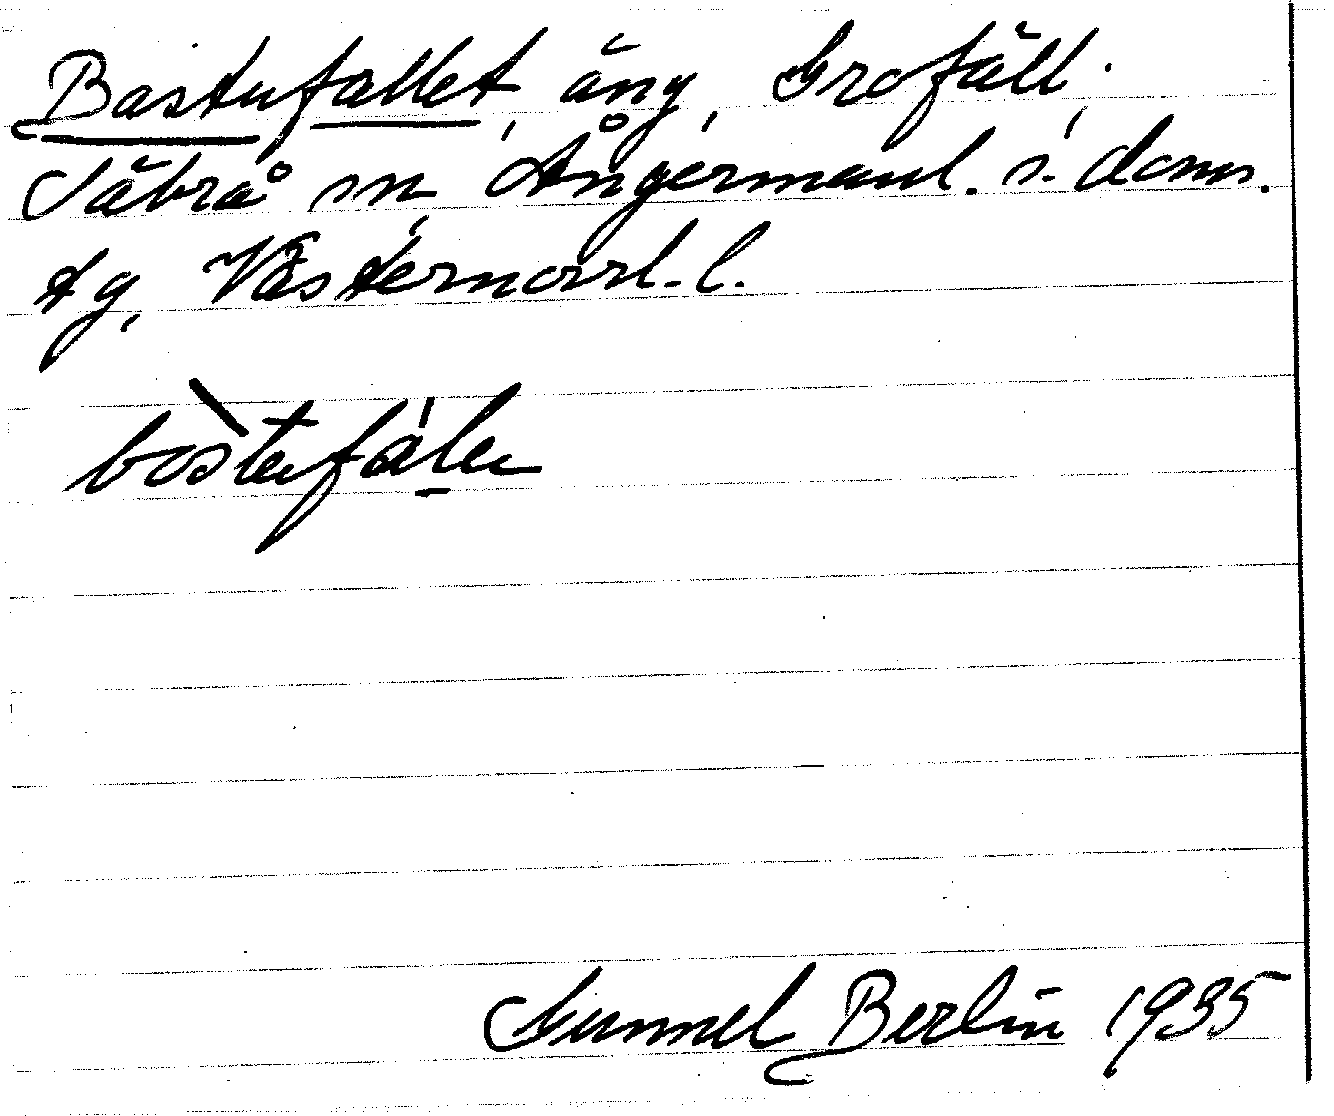 Bastufallet, äng, Grofäll,
Säbrå sn, Ångermanl. s. doms.
tg, Västernorrl. l.
bòstefálen
Gunnel Berlin 1935